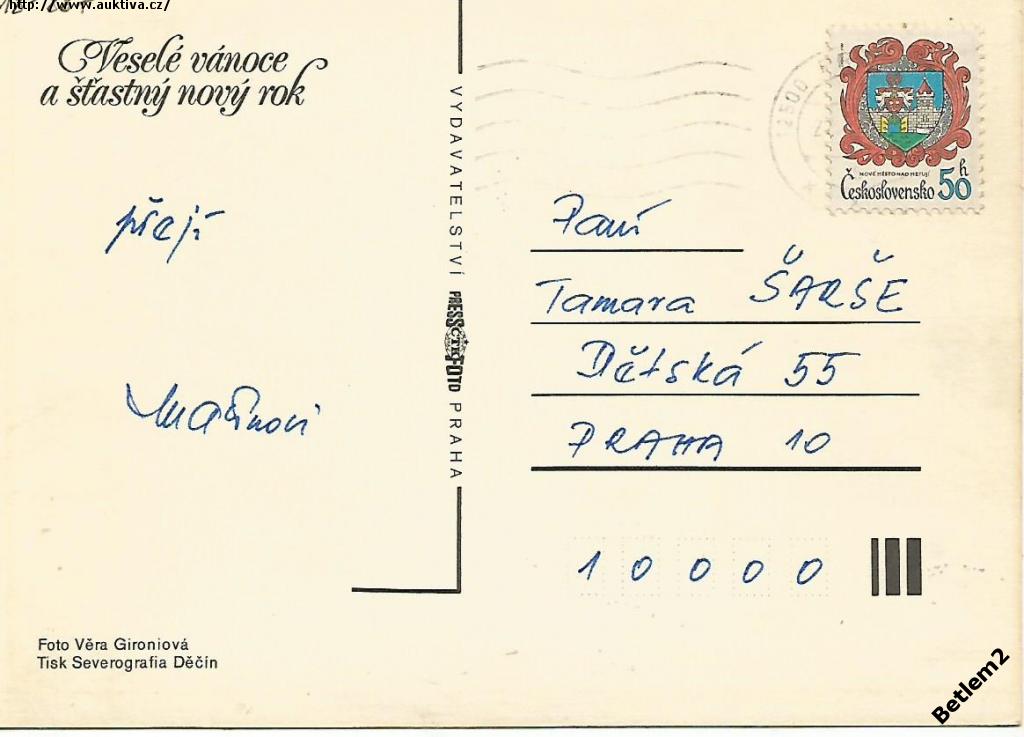 http://www.auktiva.cz/
Veselé vánoce
a šťastný nový rok
přejí
VYDAVATELSTVÍ PRESSFOTO PRAHA
ČTK
NOVÉ MĚSTO NAD METUJÍ
Československo 50 h
Paní
Tamara ŠARŠE
Dětská 55
PRAHA 10
10000
Foto Věra Gironiová
Tisk Severografia Děčín
Betlem2